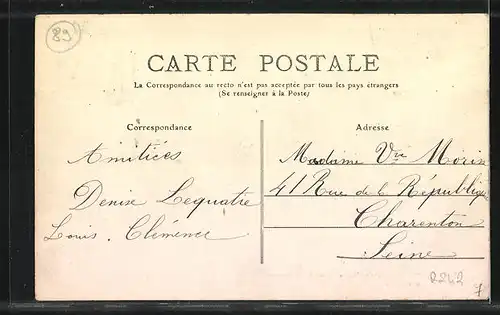 89
CARTE POSTALE
La Correspondance au recto n'est pas acceptée par tous les pays étrangers
(Se renseigner à la Poste)
Correspondance
Adresse
Amitiées
Denise Lequatre
Louis. Clémence
Madame Vve Morin
41 Rue de la République
Charenton
Seine
R242
7